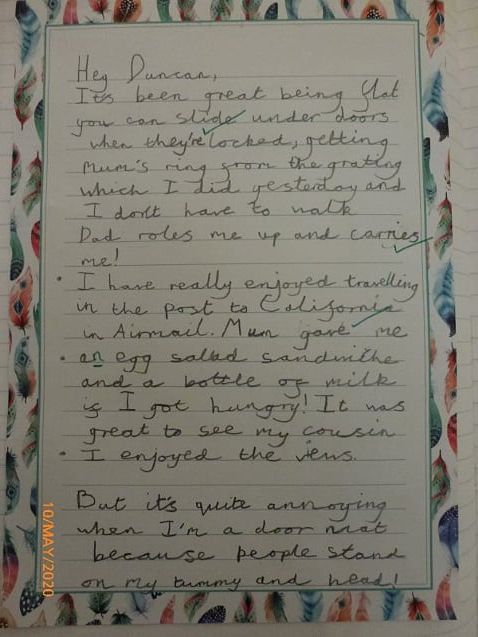 Hey Duncan,
It's been great being flat
you can slide under doors
when they're locked, getting
Mum's ring from the grating
which I did yesterday and
I don't have to walk
Dad roles me up and carries
me!
• I have really enjoyed travelling
in the post to California
in Airmail. Mum gave me
• an egg salad sandwithe
and a bottle of milk
if I got hungry! It was
great to see my cousin
• I enjoyed the views.
But it's quite annoying
when I'm a door mat
because people stand
on my tummy and head!
10/MAY/2020